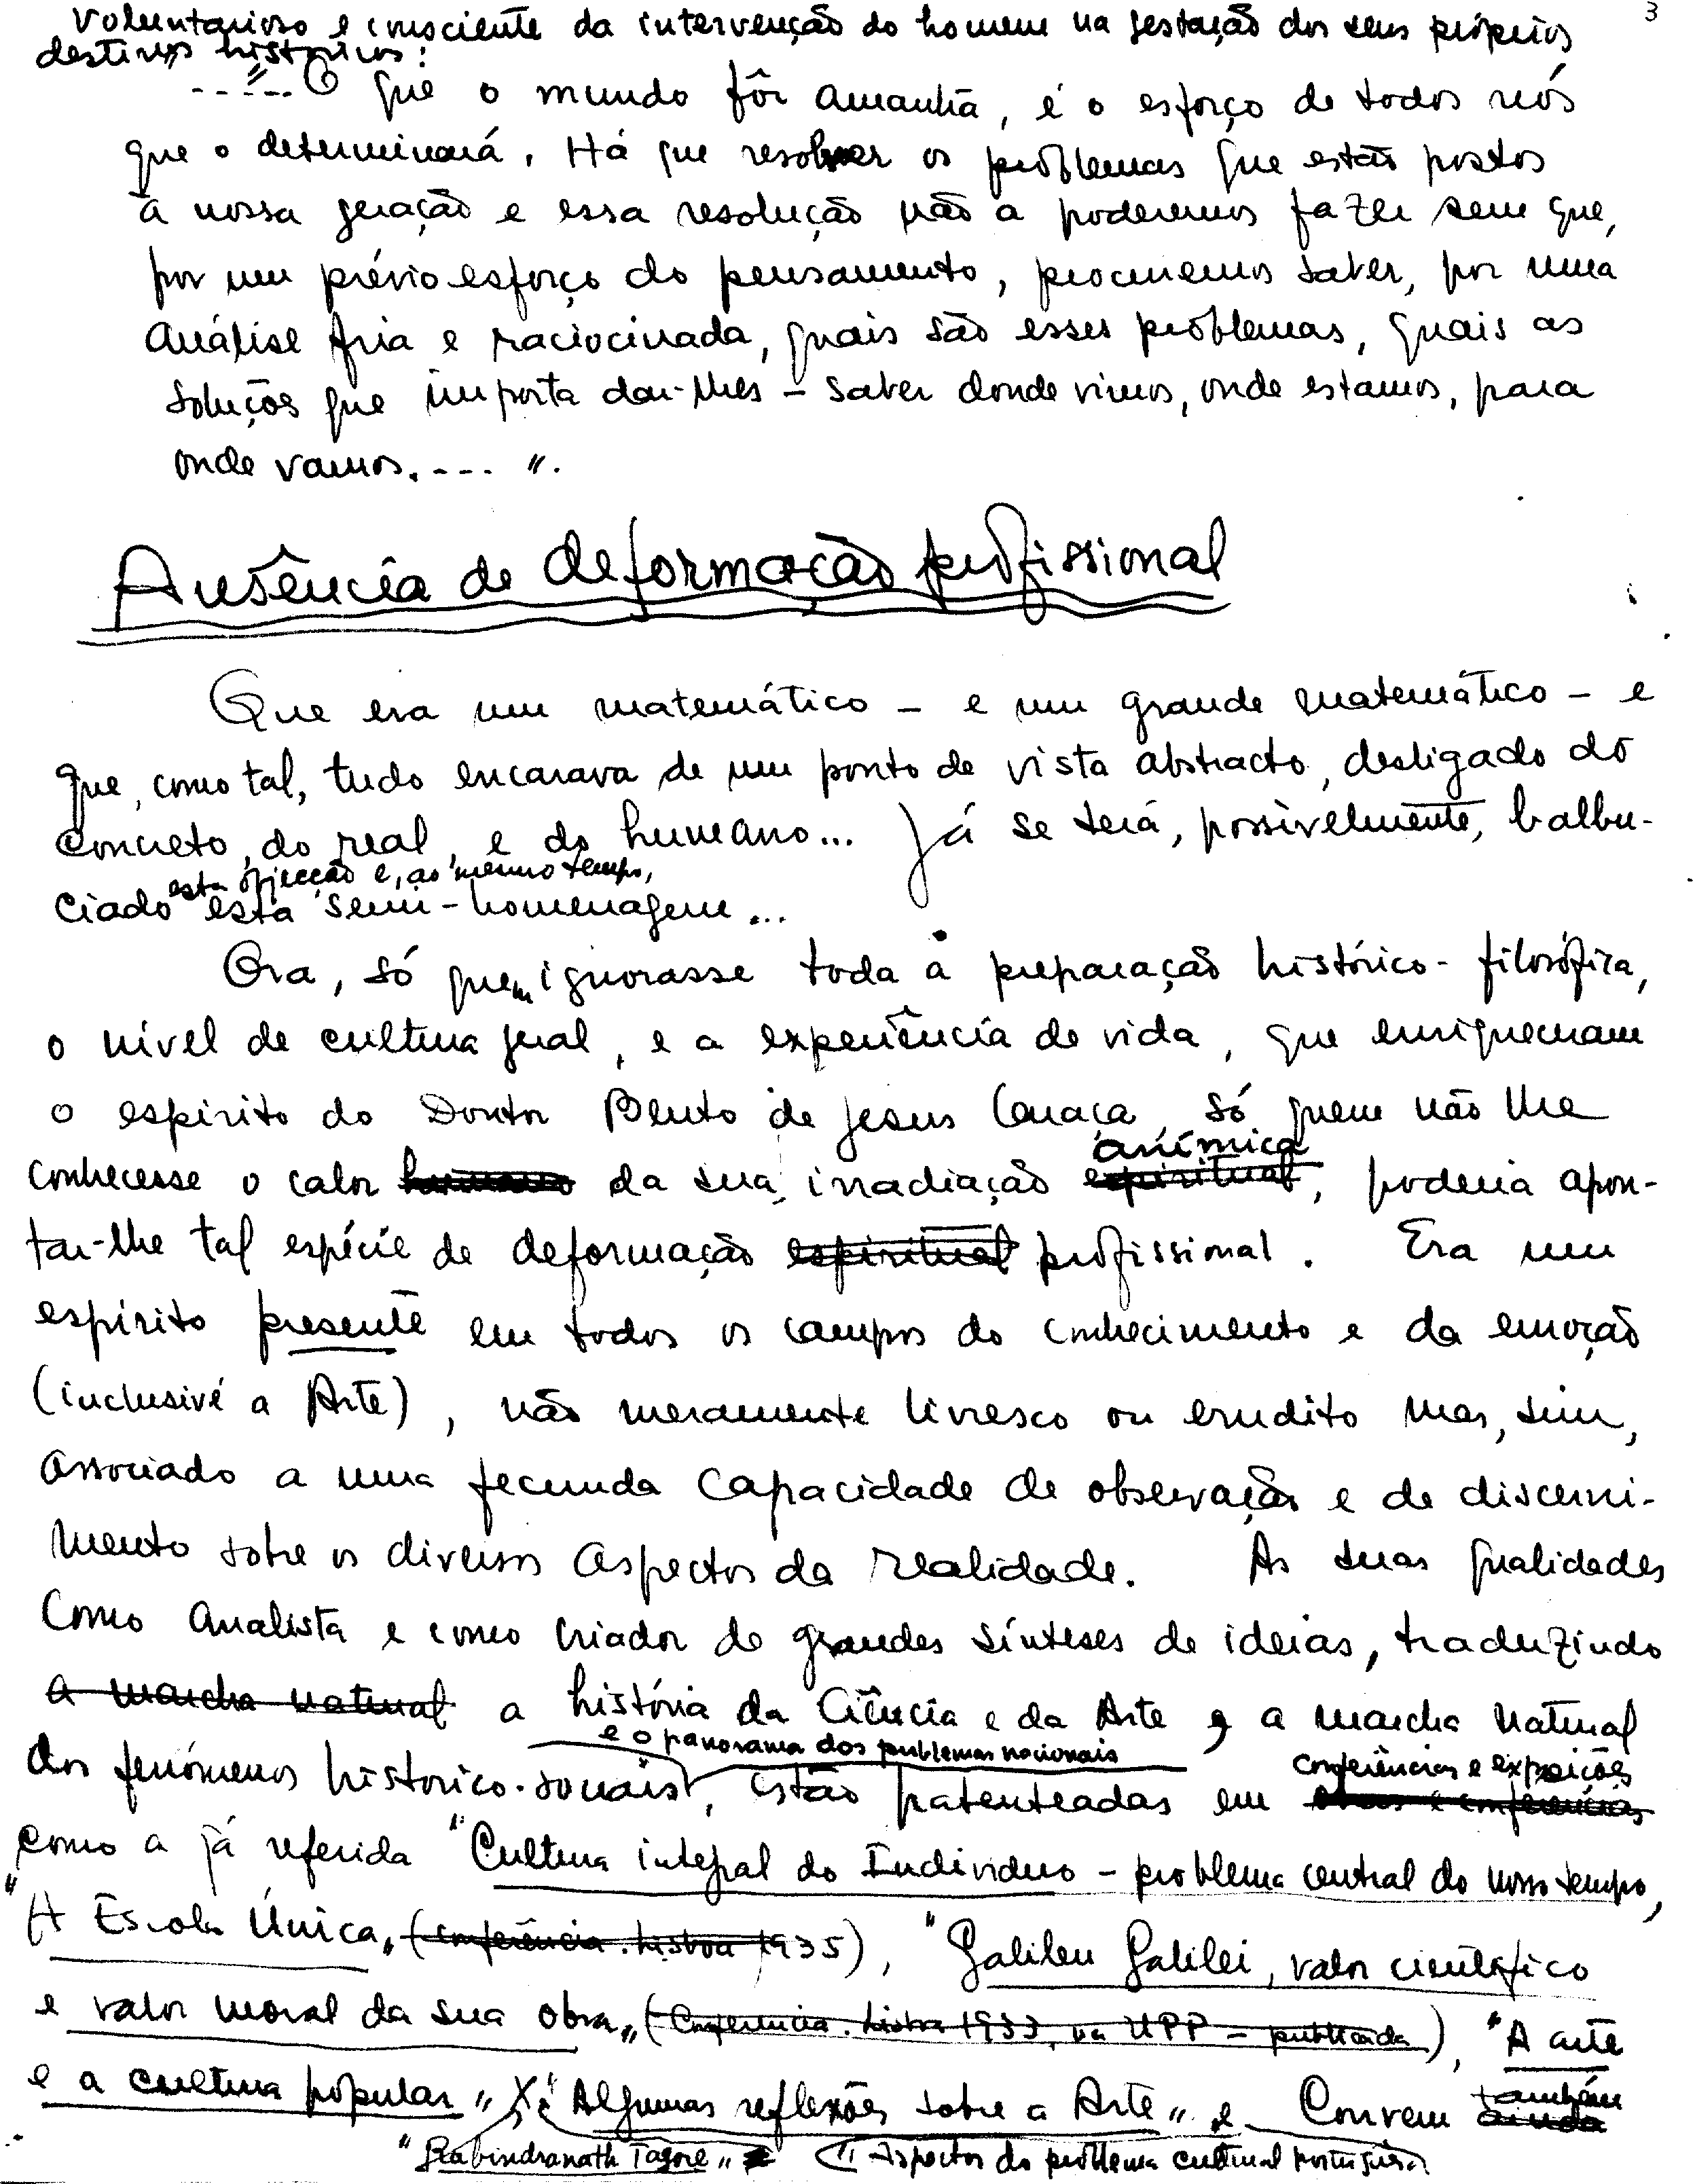 3
voluntarioso e consciente da intervenção do homem na gestação dos seus próprios
destinos históricos:
"-----O que o mundo fôr amanhã, é o esforço de todos nós
que o determinará. Há que resolver os problemas que estão postos
à nossa geração e essa resolução não a poderemos fazer sem que,
por um prévio esforço do pensamento, procuremos saber, por uma
análise fria e raciocinada, quais são esses problemas, quais as
soluções que importa dar-lhes – saber donde vimos, onde estamos, para
onde vamos.---".
Ausência de deformação profissional
Que era um matemático – e um grande matemático – e
que, como tal, tudo encarava de um ponto de vista abstracto, desligado do
concreto, do real, e do humano... Já se terá, possìvelmente, balbu-
esta objecção e, ao mesmo tempo,
ciado esta semi-homenagem...
Ora, só quem ignorasse toda a preparação histórico-filosófica,
o nível de cultura geral, e a experiência de vida, que enriqueceram
o espírito do Doutor Bento de Jesus Caraça, só quem não lhe
anímica
conhecesse o calor humano da sua irradiação espiritual, poderia apon-
tar-lhe tal espécie de deformação espiritual profissional. Era um
espírito presente em todos os campos do conhecimento e da emoção
(inclusivé a Arte), não meramente livresco ou erudito mas, sim,
associado a uma fecunda capacidade de observação e de discerni-
mento sobre os diversos aspectos da realidade. As suas qualidades
como analista e como criador de grandes sínteses de ideias, traduzindo
a marcha natural a história da Ciência e da Arte, a marcha natural
e o panorama dos problemas nacionais
conferências e exposições
dos fenómenos historico-sociais, estão patenteadas em obras e conferências
como a já referida "Cultura integral do Indivíduo – problema central do nosso tempo,
"A Escola Única" (conferência. Lisboa 1935), "Galileu Galilei, valor científico
e valor moral da sua obra" (Conferência. Lisboa 1933, na UPP – publicada), "A arte
também
e a cultura popular" "Algumas reflexões sobre a Arte" e Convem ainda
"Rabindranath Tagore" "Aspectos do problema cultural português